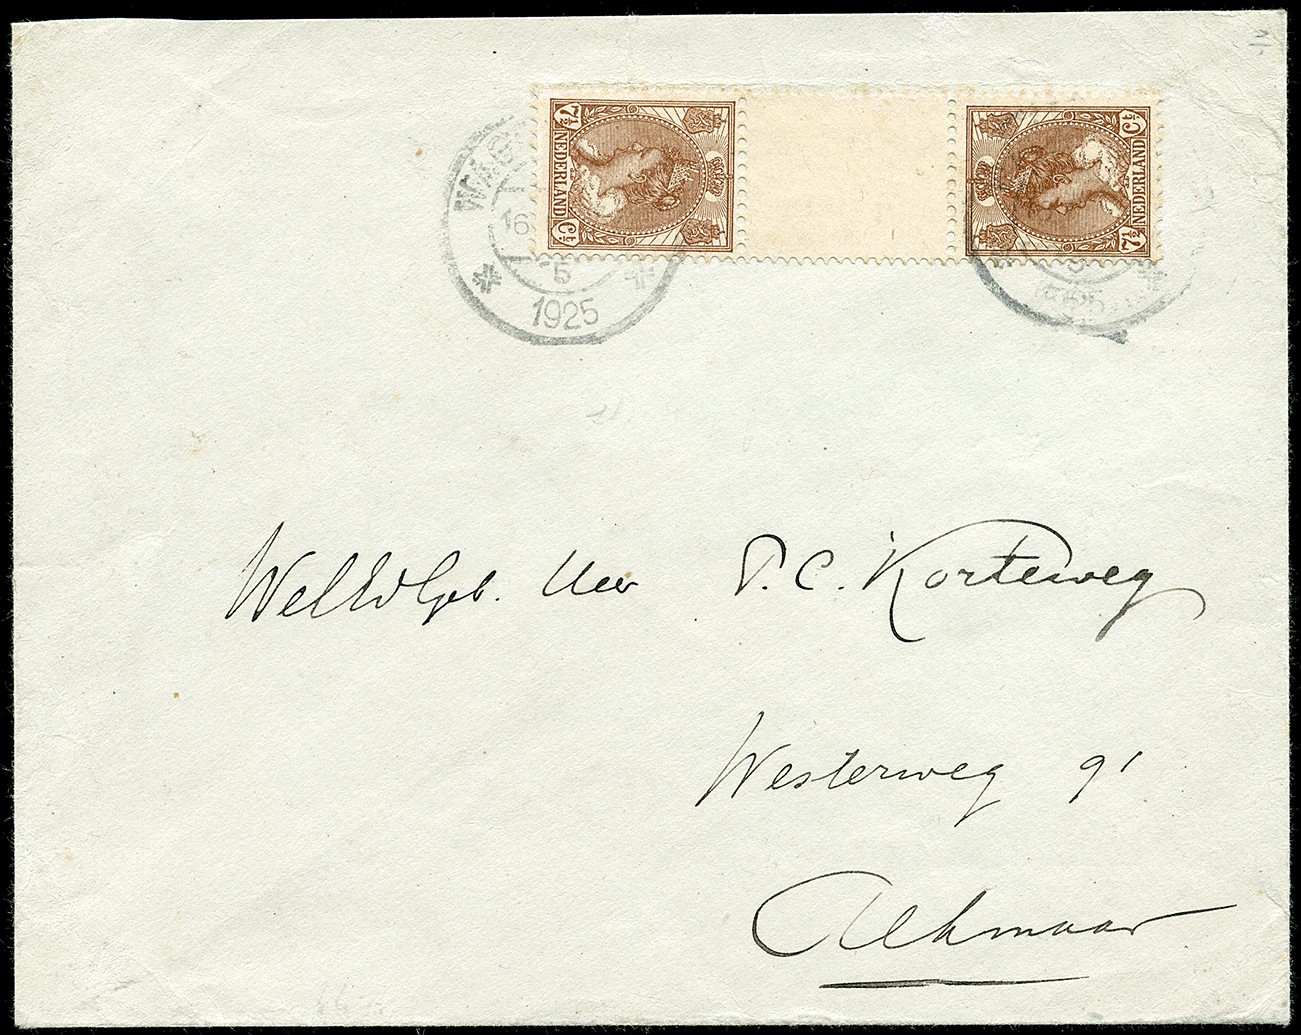 7½ NEDERLAND Ct
7½ NEDERLAND Ct
16
5
1925
WelEdGeb. Heer P. C. Korteweg
Westerweg 91
Alkmaar